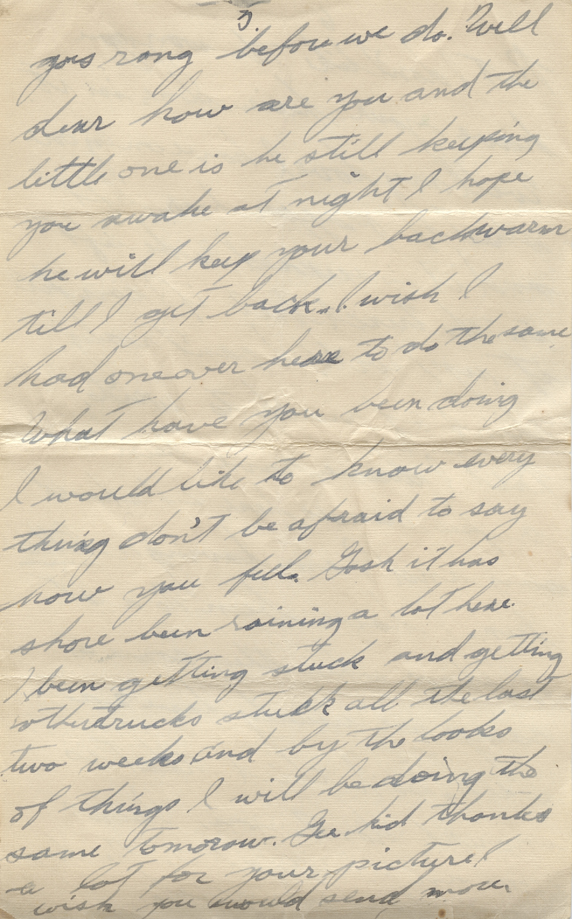 3
yours rong before we do. Well
dear how are you and the
little one is he still keeping
you awake at night I hope
he will keep your back warm
till I get back. I wish I
had one over here to do the same
What have you been doing
I would like to know every
thing don't be afraid to say
how you feel. Gosh it has
shore been raining a lot here.
I been getting stuck and getting
other trucks stuck all the last
two weeks and by the looks
of things I will be doing the
same tomorow. Gee kid thanks
a lot for your picture I
wish you would send more